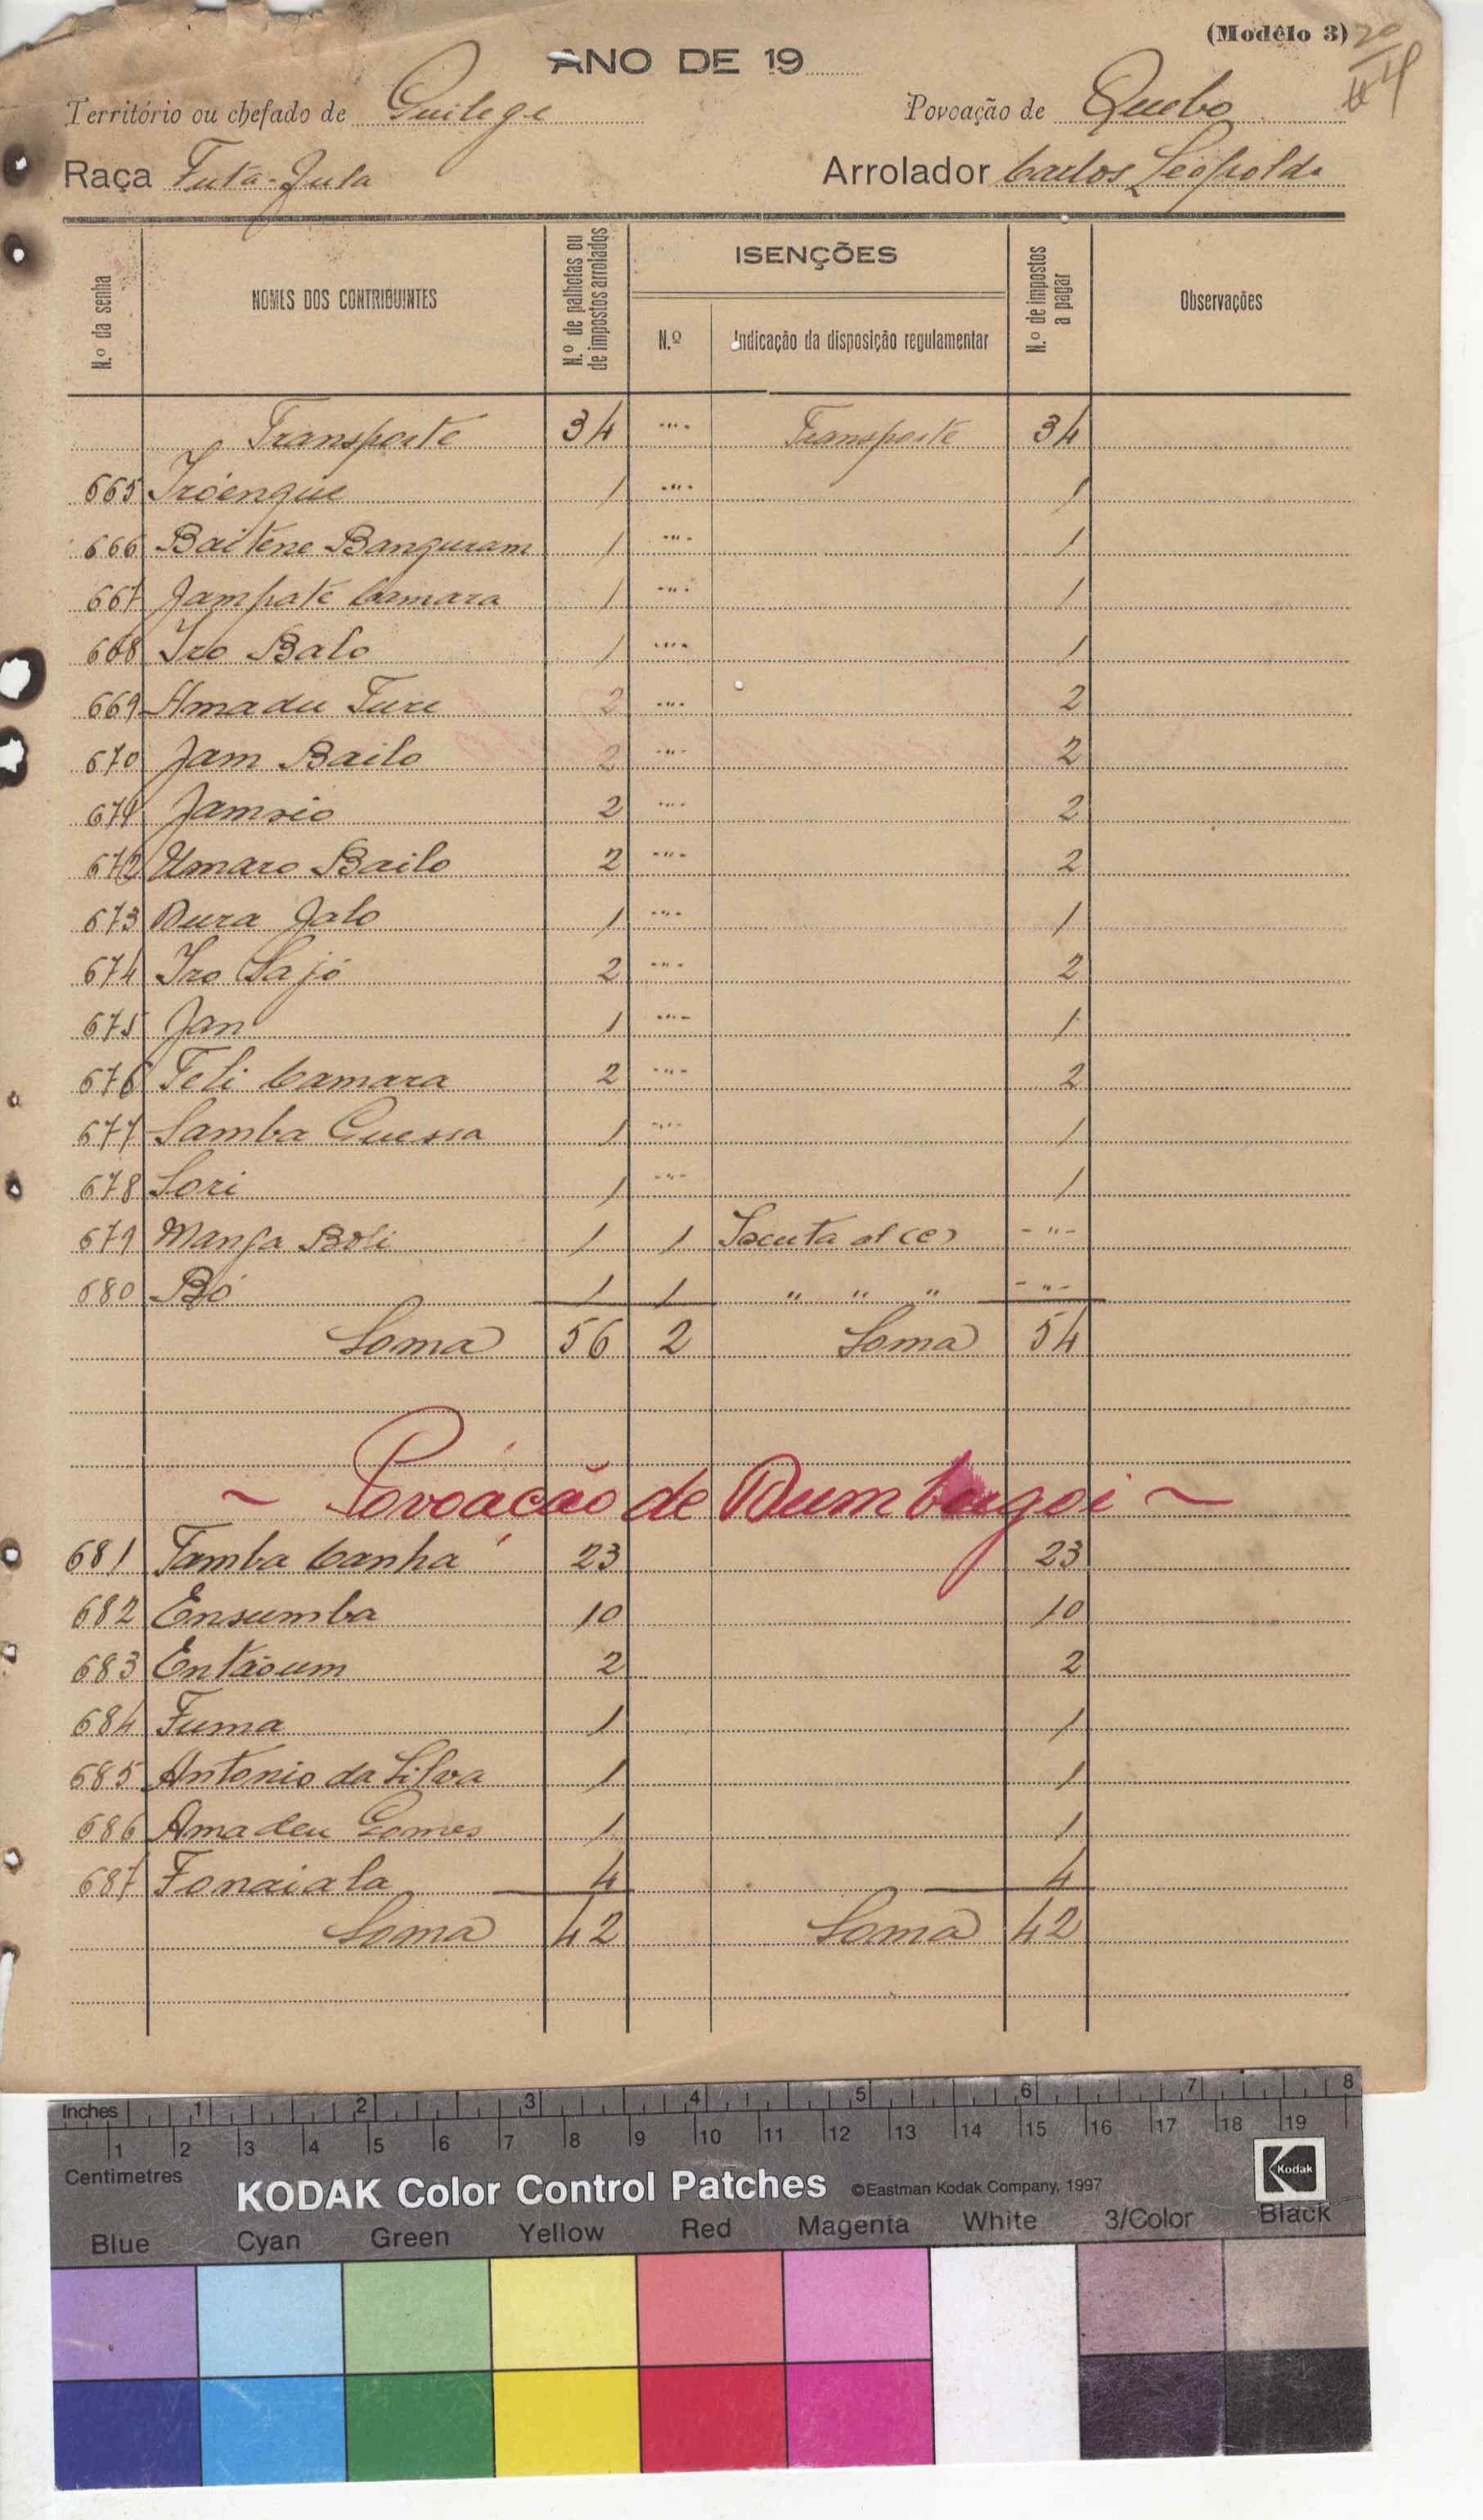 (Modêlo 3) 20
ANO DE 19
Território ou chefado de Guilege Povoação de Quebo
Raça Futa-Jula Arrolador Carlos Leopoldo
N.º da senha NOMES DOS CONTRIBUINTES N.º de palhotas ou de impostos arrolados ISENÇÕES N.º Indicação da disposição regulamentar N.º de impostos a pagar Observações
Transporte 34 -"- Transporte 34
665 Iróengue 1 -"- 1
666 Bailene Banguram 1 -"- 1
667 Jampate Camara 1 -"- 1
668 Iro Balo 1 -"- 1
669 Amadu Ture 2 -"- 2
670 Jam Bailo 2 -"- 2
671 Jamsio 2 -"- 2
672 Umaro Bailo 2 -"- 2
673 Dura Jalo 1 -"- 1
674 Iro Sajó 2 -"- 2
675 Jan 1 -"- 1
676 Teli Camara 2 -"- 2
677 Samba Guessa 1 -"- 1
678 Sori 1 -"- 1
679 Manga Boli 1 1 -"-
680 Bó 1 1 " " " -"-
Soma 56 2 Soma 54
~ Povoação de Dumbagoi ~
681 Tamba Canha 23 23
682 Ensumba 10 10
683 Entãoum 2 2
684 Fuma 1 1
685 Antonio da Silva 1 1
686 Amadeu Gomes 1 1
687 Fonaiala 4 4
Soma 42 Soma 42
Inches 1 2 3 4 5 6 7 8
1 2 3 4 5 6 7 8 9 10 11 12 13 14 15 16 17 18 19
Centimetres
KODAK Color Control Patches ©Eastman Kodak Company, 1997 Kodak
Blue Cyan Green Yellow Red Magenta White 3/Color Black